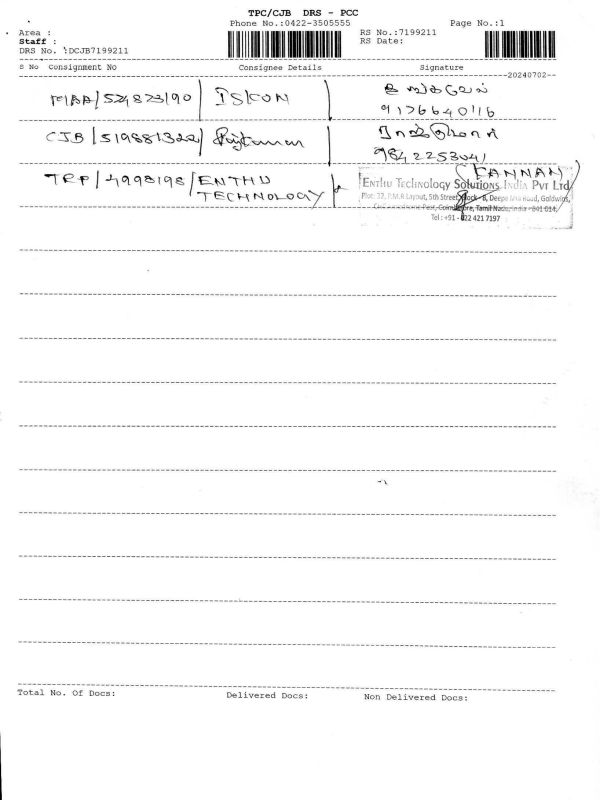 TPC/CJB DRS - PCC
Phone No.:0422-3505555
Page No.:1
Area :
RS No.:7199211
Staff :
RS Date:
DRS No. :DCJB7199211
S No Consignment No Consignee Details Signature
--20240702--
ISKON
CJB/519881322/
9842253041
TRP/4998198/ENTHU TECHNOLOGY
(KANNAN)
ENTHU Technology Solutions India Pvt Ltd
Plot: 32, P.M.R Layout, 5th Street, Block - B, Deepa Mill Road, Goldwins,
Civil Aerodrome Post, Coimbatore, Tamil Nadu, India - 641 014,
Tel : +91 - 422 421 7197
Total No. Of Docs: Delivered Docs: Non Delivered Docs: